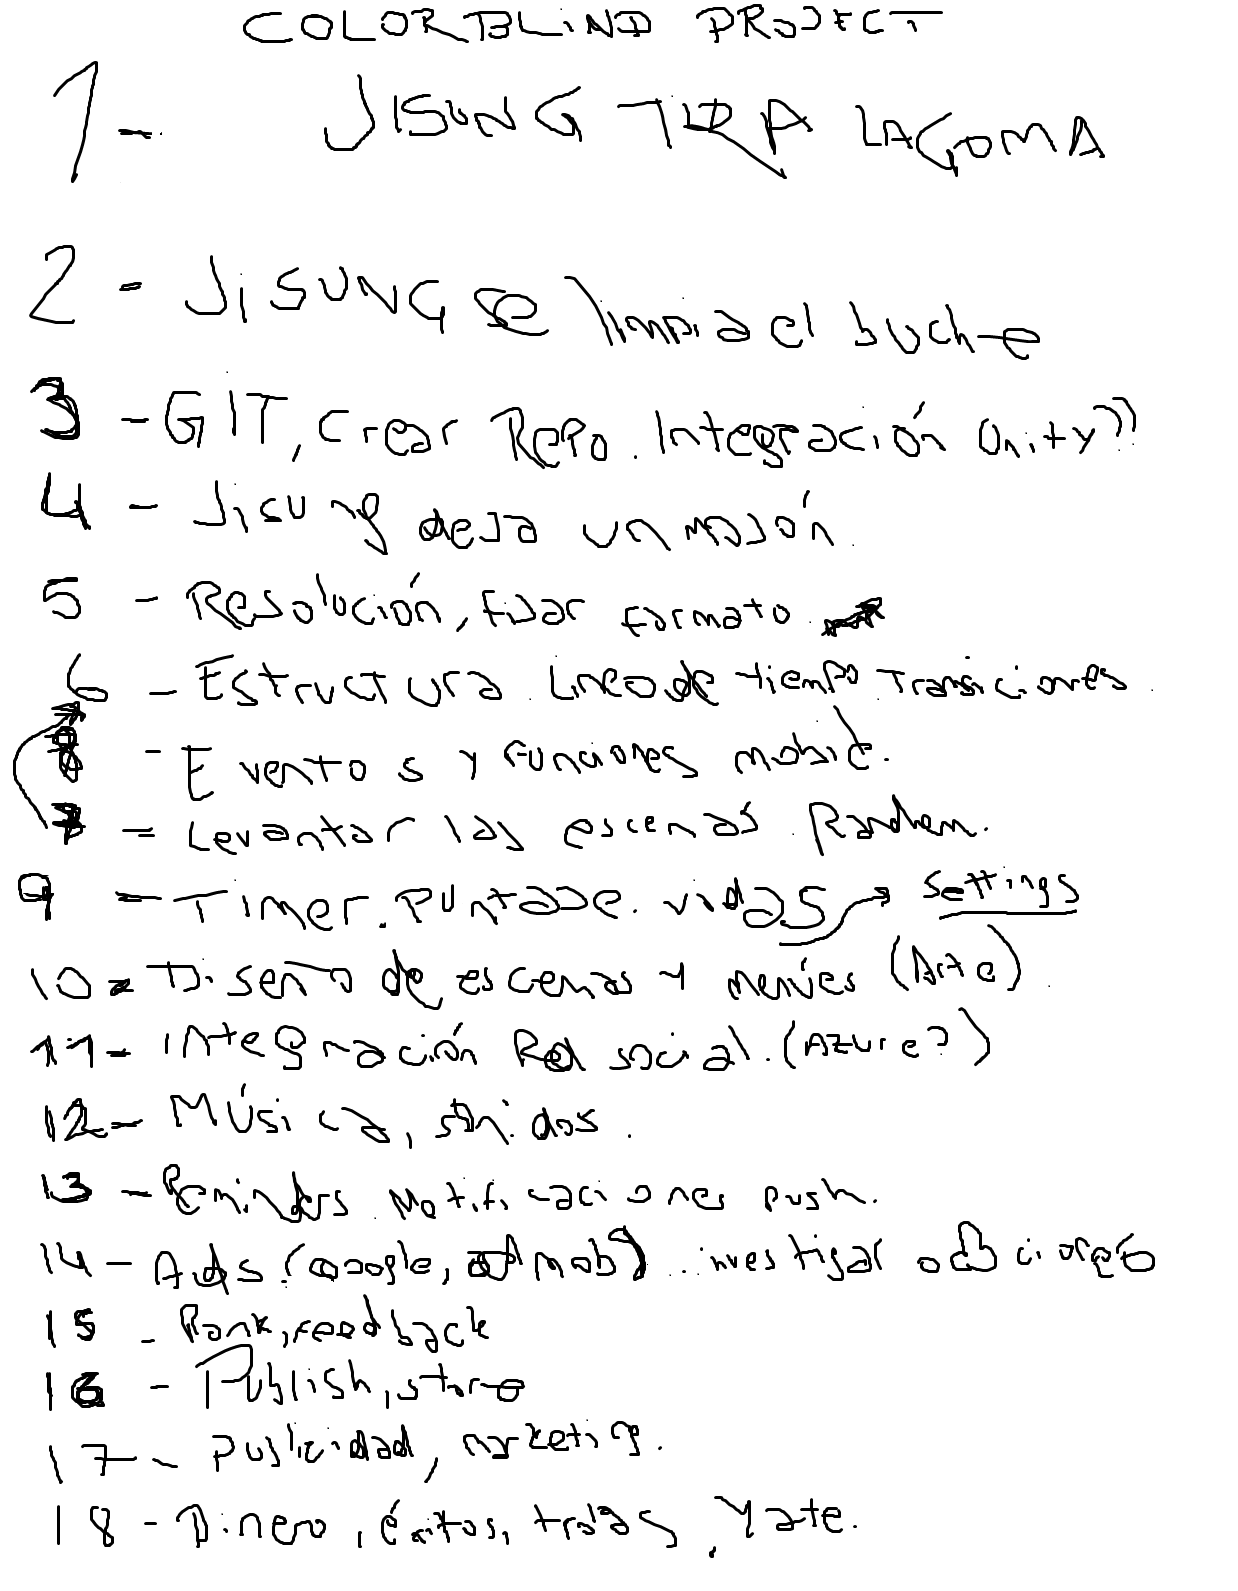 COLORBLIND PROJECT
1- JISUNG TIRA LA GOMA
2- JISUNG se limpia el buche
3 - GIT, Crear Repo. Integración Unity??
4 - Jisung deja un mojón.
5 - Resolución, fijar formato
6 - Estructura. Linea de tiempo. Transiciones.
8 - Eventos y funciones
7 - Levantar las escenas. Random.
9 - Timer. Puntaje. vidas → Settings
10 - Diseño de escenas y menúes (Arte).
11- Integración Red social. (Azure?)
12- Música, sonidos.
13 - Reminders. Notificaciones push.
14 - Ads. (google, admob). investigar
15 - Rank, feedback
16 - Publish, store
17 - Publicidad, marketing.
18 - Dinero, éxitos, , Yate.